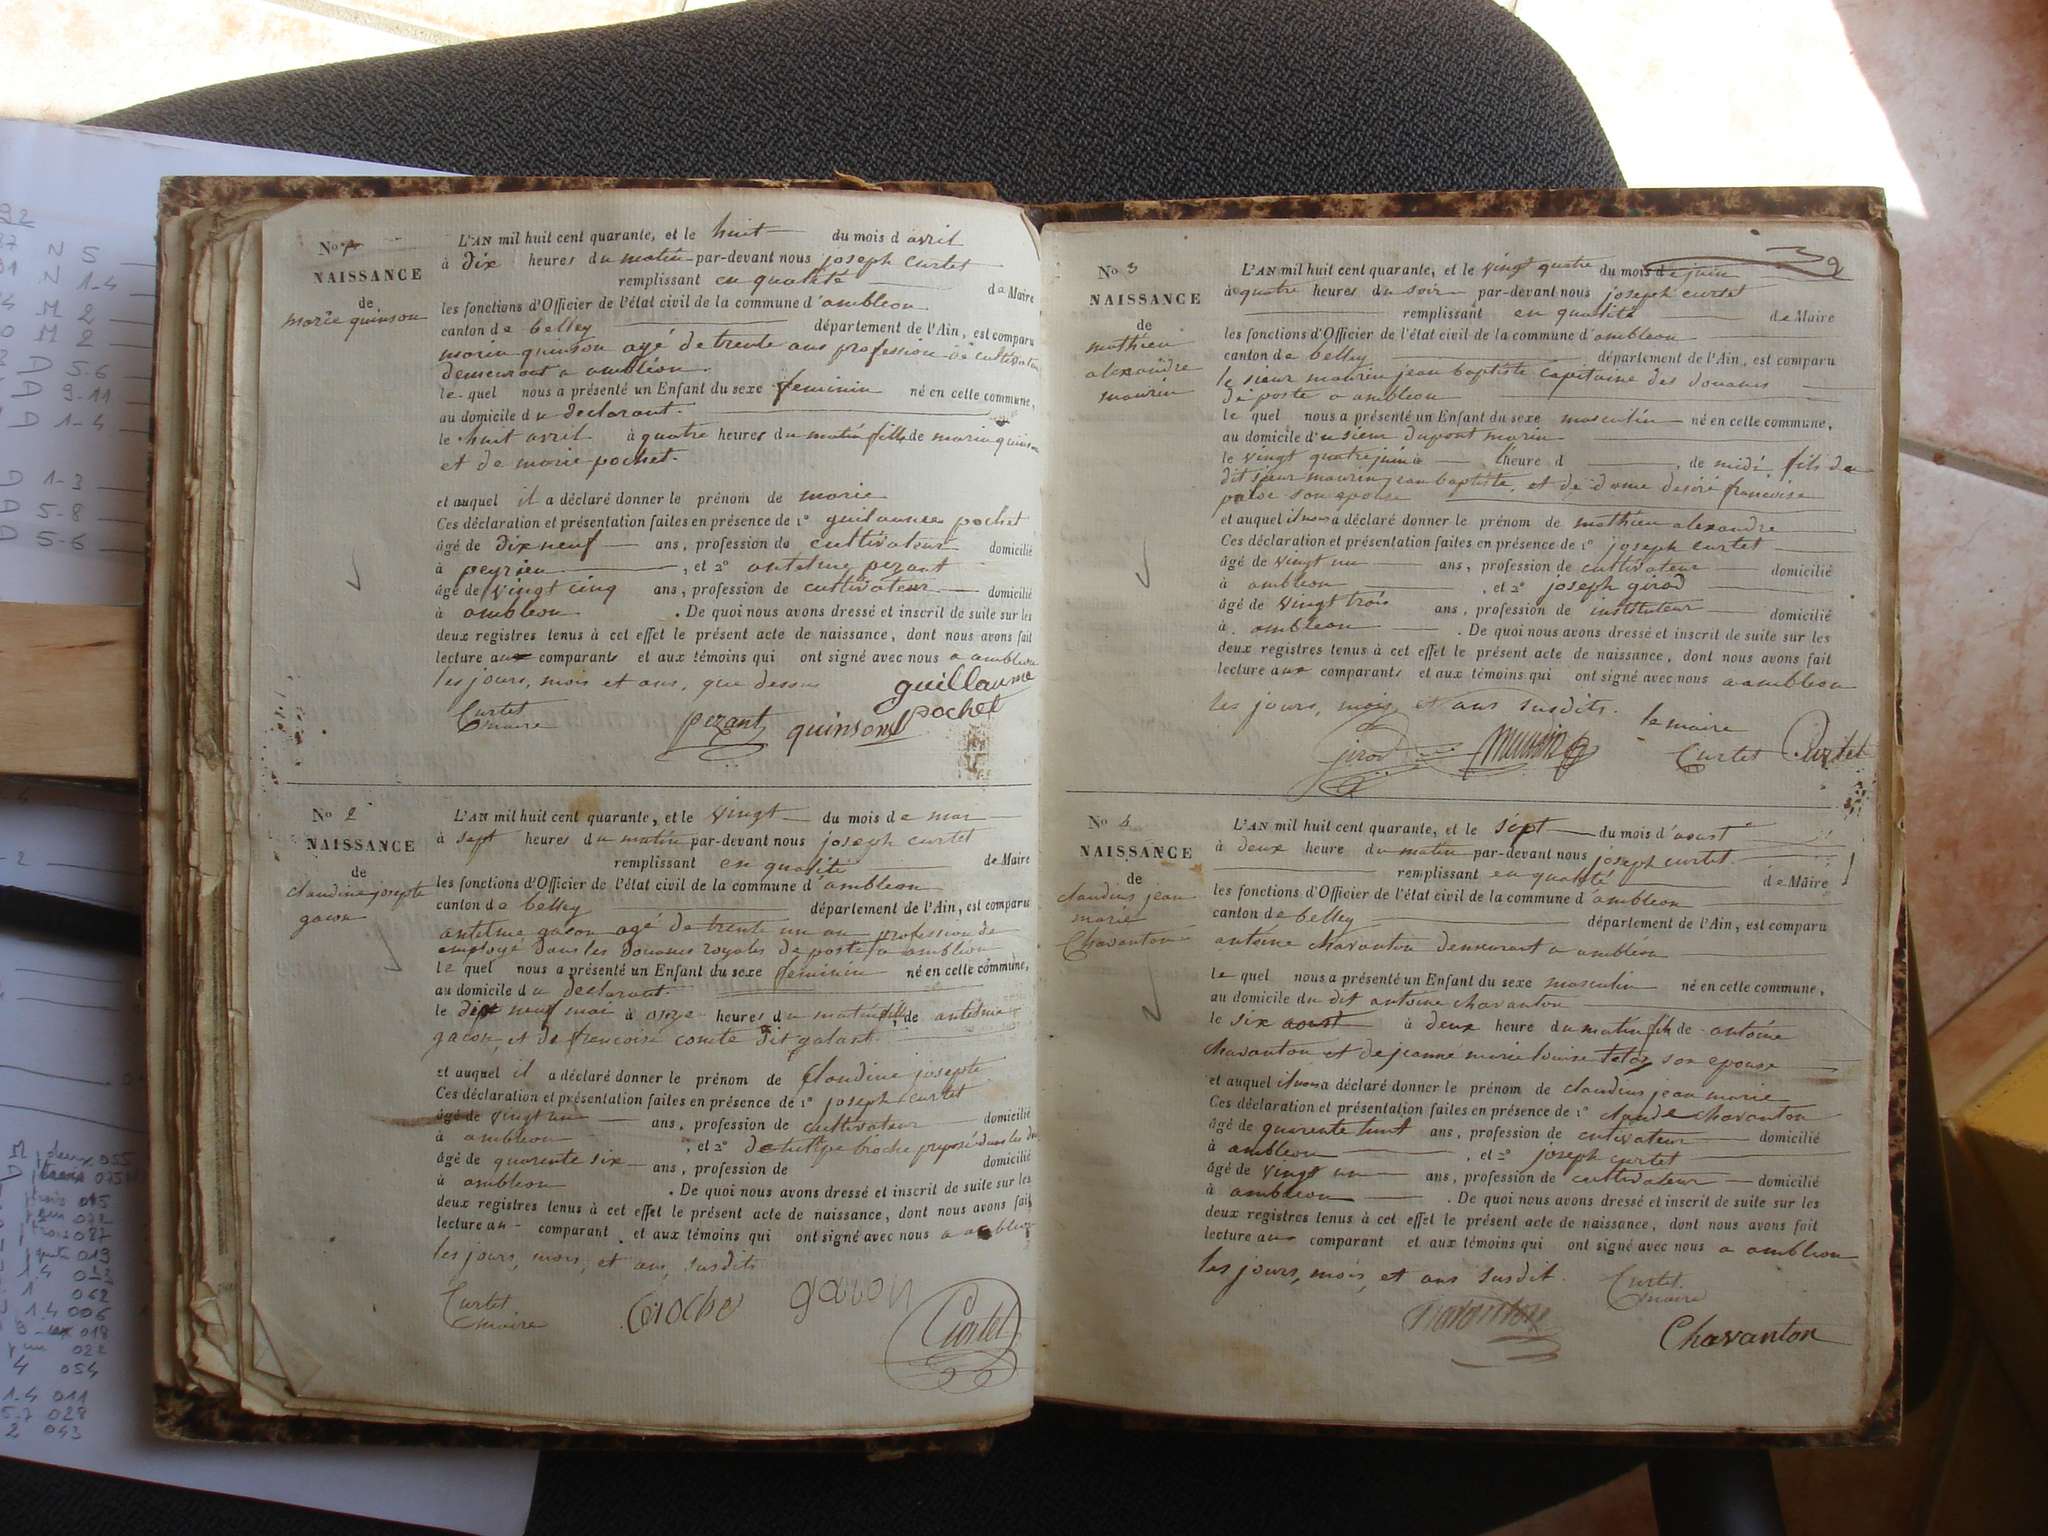 No 1
NAISSANCE
de
marie quinson
L'AN mil huit cent quarante, et le huit du mois d avril
à dix heures du matin par-devant nous joseph curtet
remplissant en qualité de Maire
les fonctions d'Officier de l'état civil de la commune d'ambleon
canton de belley département de l'Ain, est comparu
marin quinson agé de trente ans profession de cultivateur
demeurant a ambléon.
le quel nous a présenté un Enfant du sexe feminin né en cette commune,
au domicile du declarant.
le huit avril à quatre heures du matin fille de marin quinson
et de marie pochet.
et auquel il a déclaré donner le prénom de marie
Ces déclaration et présentation faites en présence de 1° guilaume pochet
âgé de dix neuf ans, profession de cultivateur domicilié
à peyrieu, et 2° antelme pezant
âgé de vingt cinq ans, profession de cultivateur domicilié
à ambleon. De quoi nous avons dressé et inscrit de suite sur les
deux registres tenus à cet effet le présent acte de naissance, dont nous avons fait
lecture aux comparants et aux témoins qui ont signé avec nous a ambleon
les jours, mois et ans, que dessus
guillaume
pochet
Curtet
maire
pezant quinson
No 2
NAISSANCE
de
claudine josepte
gacon
L'AN mil huit cent quarante, et le vingt du mois de mai
à sept heures du matin par-devant nous joseph curtet
remplissant en qualité de Maire
les fonctions d'Officier de l'état civil de la commune d'ambleon
canton de belley département de l'Ain, est comparu
antelme gacon agé de trente un an profession de
employé dans les Douanes royales de poste a ambléon
le quel nous a présenté un Enfant du sexe feminin né en cette commune,
au domicile du declarant.
le dix neuf mai à onze heures du matin fille de antelme
gacon, et de francoise comte dit galant.
et auquel il a déclaré donner le prénom de Claudine josepte
Ces déclaration et présentation faites en présence de 1° joseph curtet
âgé de vingt un ans, profession de cultivateur domicilié
à ambleon, et 2° broche preposé dans les
âgé de quarente six ans, profession de domicilié
à ambleon. De quoi nous avons dressé et inscrit de suite sur les
deux registres tenus à cet effet le présent acte de naissance, dont nous avons fait
lecture au comparant et aux témoins qui ont signé avec nous a ambleon
les jours, mois, et ans, susdits
Curtet
maire
Broche gacon Curtet
No 3
NAISSANCE
de
mathieu
alexandre
maurin
L'AN mil huit cent quarante, et le vingt quatre du mois de juin
à quatre heures du soir par-devant nous joseph curtet
remplissant en qualité de Maire
les fonctions d'Officier de l'état civil de la commune d'ambleon
canton de belley département de l'Ain, est comparu
le sieur maurin jean baptiste capitaine des douanes
de poste a ambleon
le quel nous a présenté un Enfant du sexe masculin né en cette commune,
au domicile d'u sieur dupont marin
le vingt quatre juin à l'heure d de midi, fils du
dit sieur maurin jean baptiste, et de dame desiré francoise
son epouse
et auquel il nous a déclaré donner le prénom de mathieu alexandre
Ces déclaration et présentation faites en présence de 1° joseph curtet
âgé de vingt un ans, profession de cultivateur domicilié
à ambleon, et 2° joseph girod
âgé de vingt trois ans, profession de instituteur domicilié
à ambleon. De quoi nous avons dressé et inscrit de suite sur les
deux registres tenus à cet effet le présent acte de naissance, dont nous avons fait
lecture aux comparants et aux témoins qui ont signé avec nous a ambleon
les jours, mois, et ans susdits. le maire
girod Maurin Curtet Curtet
No 4
NAISSANCE
de
claudius jean
marie
Chavanton
L'AN mil huit cent quarante, et le sept du mois d'aoust
à deux heure du matin par-devant nous joseph curtet.
remplissant en qualité de Maire
les fonctions d'Officier de l'état civil de la commune d'ambleon
canton de belley département de l'Ain, est comparu
antoine chavanton demeurant a ambléon
le quel nous a présenté un Enfant du sexe masculin né en cette commune,
au domicile du dit antoine chavanton
le six aoust à deux heure du matin fils de antoine
chavanton et de jeanne marie louise son epouse
et auquel il nous a déclaré donner le prénom de claudius jean marie
Ces déclaration et présentation faites en présence de 1° claude chavanton
âgé de quarente huit ans, profession de cultivateur domicilié
à ambleon, et 2° joseph curtet
âgé de vingt un ans, profession de cultivateur domicilié
à ambleon. De quoi nous avons dressé et inscrit de suite sur les
deux registres tenus à cet effet le présent acte de naissance, dont nous avons fait
lecture aux comparant et aux témoins qui ont signé avec nous a ambleon
les jours, mois, et ans susdit.
Curtet
maire
Chavanton
N 5
N 1-4
M 2
M 2
D 5-6
D 9-11
D 1-4
D 1-3
D 5-8
D 5-6